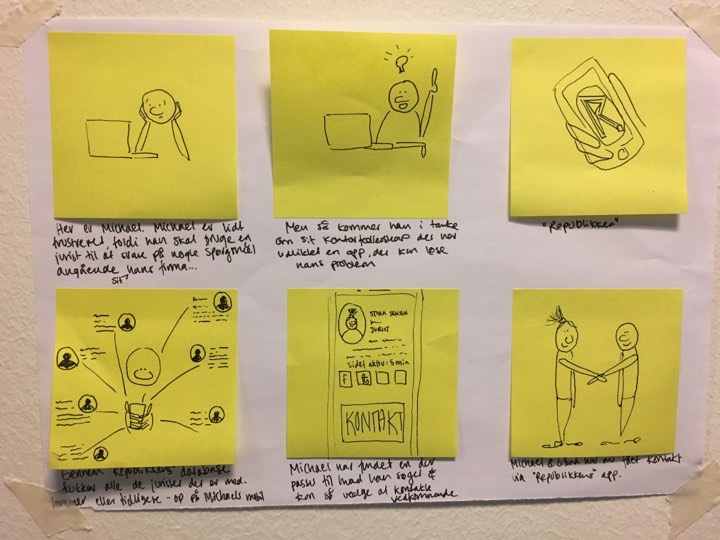 Her er Michael. Michael er lidt
frustreret, fordi han skal bruge en
jurist til at svare på nogle spørgsmål
angående hans firma...
sit
Men så kommer han i tanke
om sit kontorfællesskab der har
udviklet en app, der kan løse
hans problem
R
"Republikken"
Gennem Republikkens database
dukker alle de jurister der er med-
lemmer eller tidligere - op på Michaels mobil
STINA JENSEN
JURIST
Sidst aktiv: 5 min
f
KONTAKT
Michael har fundet en der
passer til hvad han søger &
kan så vælge at kontakte
vedkommende
Michael & Stina har nu fået kontakt
via "Republikkens" app.